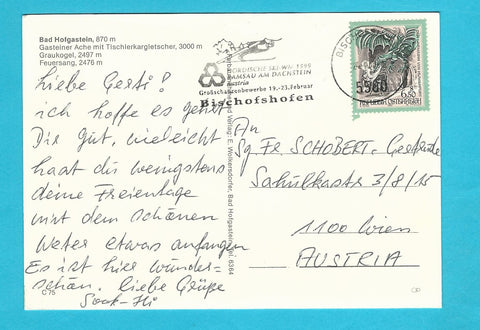 Bad Hofgastein, 870 m
Gasteiner Ache mit Tischlerkargletscher, 3000 m
Graukogel, 2497 m
Feuersang, 2476 m
Liebe Gerti!
ich hoffe es geht
Dir gut, vielleicht
hast du wenigstens
deine Freientage
mit dem schönen
Weter etwas anfangen
Es ist hier wunder-
schön. Liebe Grüße
C 75
NORDISCHE SKI-WM 1999
RAMSAU AM DACHSTEIN
Austria
Großschanzenbewerbe 19.-23.Februar
Bischofshofen
5500
6.50
REPUBLIK ÖSTERREICH
Verlag: E. Wolkersdorfer, Bad Hofgastein, Tel. 8364
An
Fr SCHOBERT Gertrude
3/8/15
1100 Wien
AUSTRIA